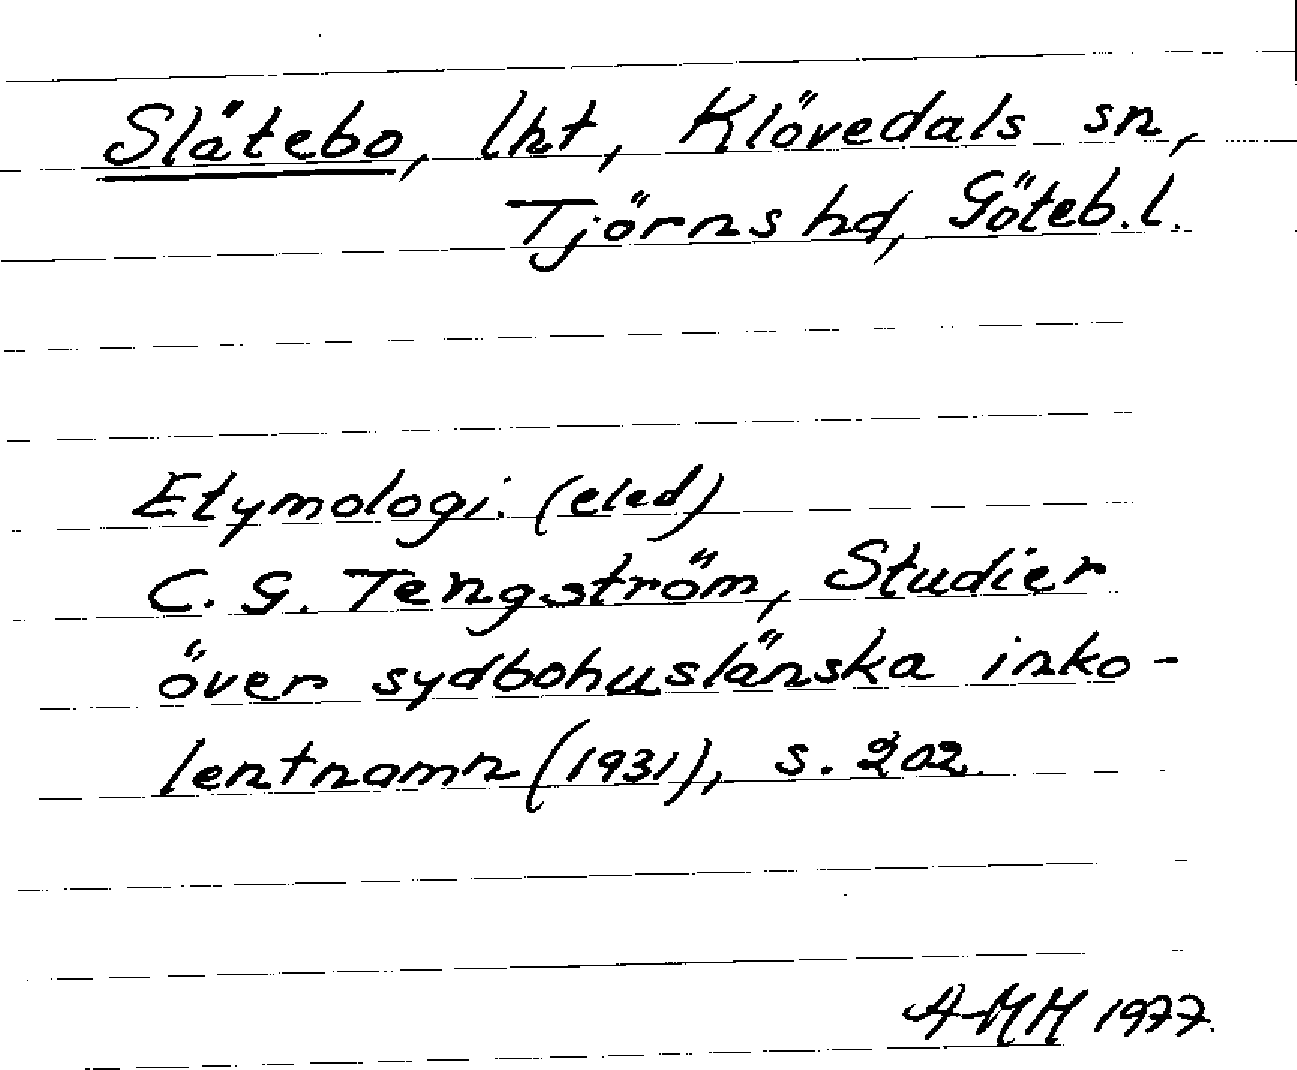 Slätebo, lht, Klövedals sn,
Tjörns hd, Göteb.l.
Etymologi. (eled)
C. G. Tengström, Studier
över sydbohuslänska inko-
lentnamn (1931), s. 202.
A-MH 1977.